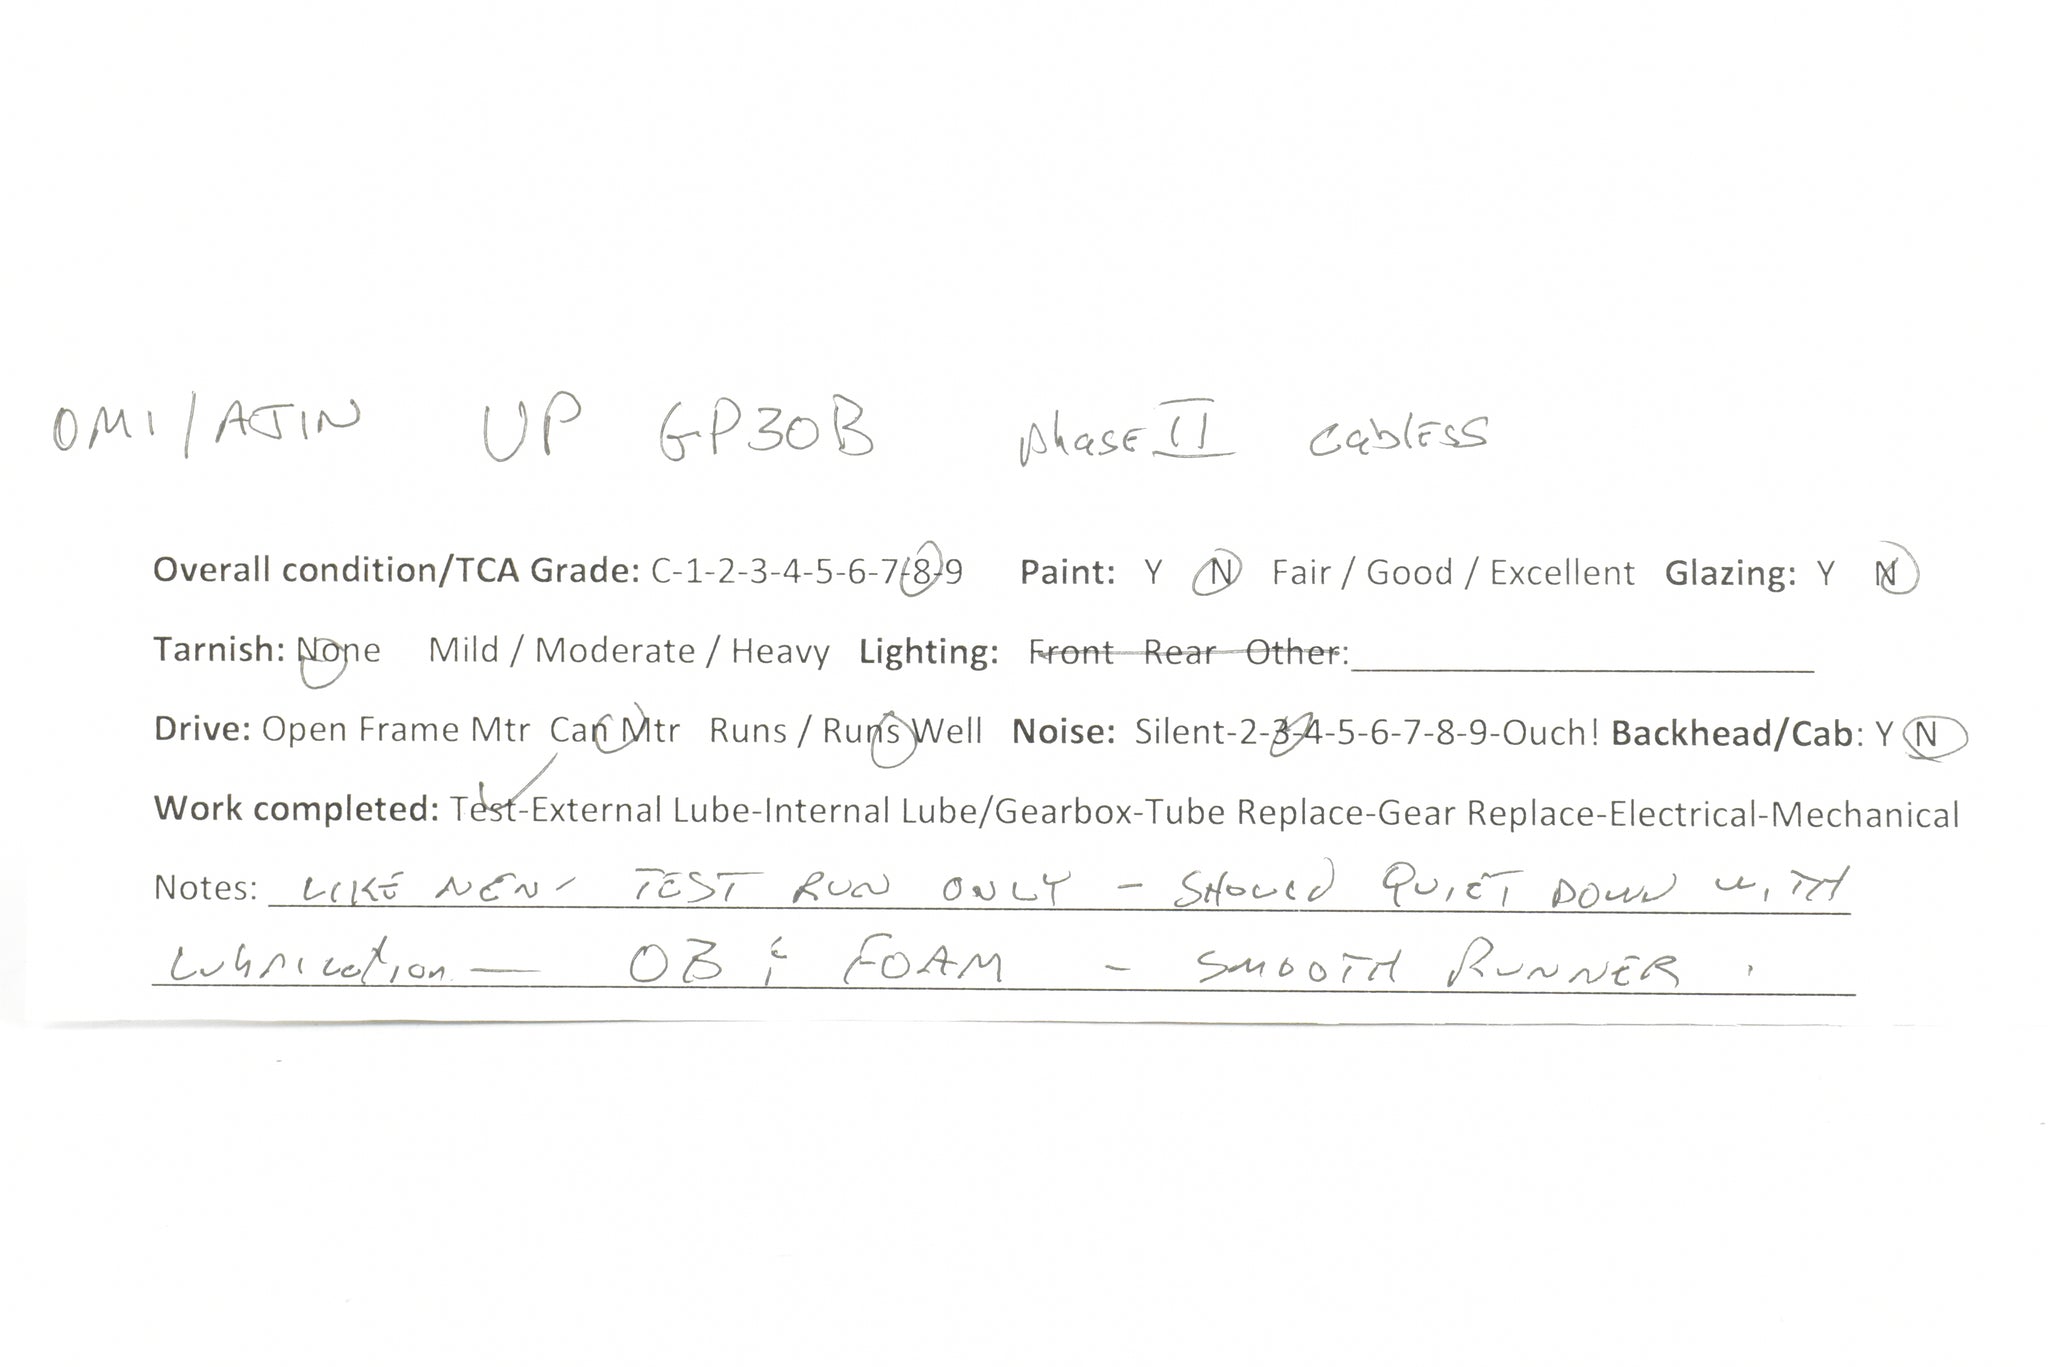 OMI/AJIN UP GP30B phase II cabless
Overall condition/TCA Grade: C-1-2-3-4-5-6-7-8-9 Paint: Y N Fair / Good / Excellent Glazing: Y N
Tarnish: None Mild / Moderate / Heavy Lighting: Front Rear Other:
Drive: Open Frame Mtr Can Mtr Runs / Runs Well Noise: Silent-2-3-4-5-6-7-8-9-Ouch! Backhead/Cab: Y N
Work completed: Test-External Lube-Internal Lube/Gearbox-Tube Replace-Gear Replace-Electrical-Mechanical
Notes: LIKE NEW TEST RUN ONLY - SHOULD QUIET DOWN WITH
Lubrication — OB & FOAM - SMOOTH RUNNER.